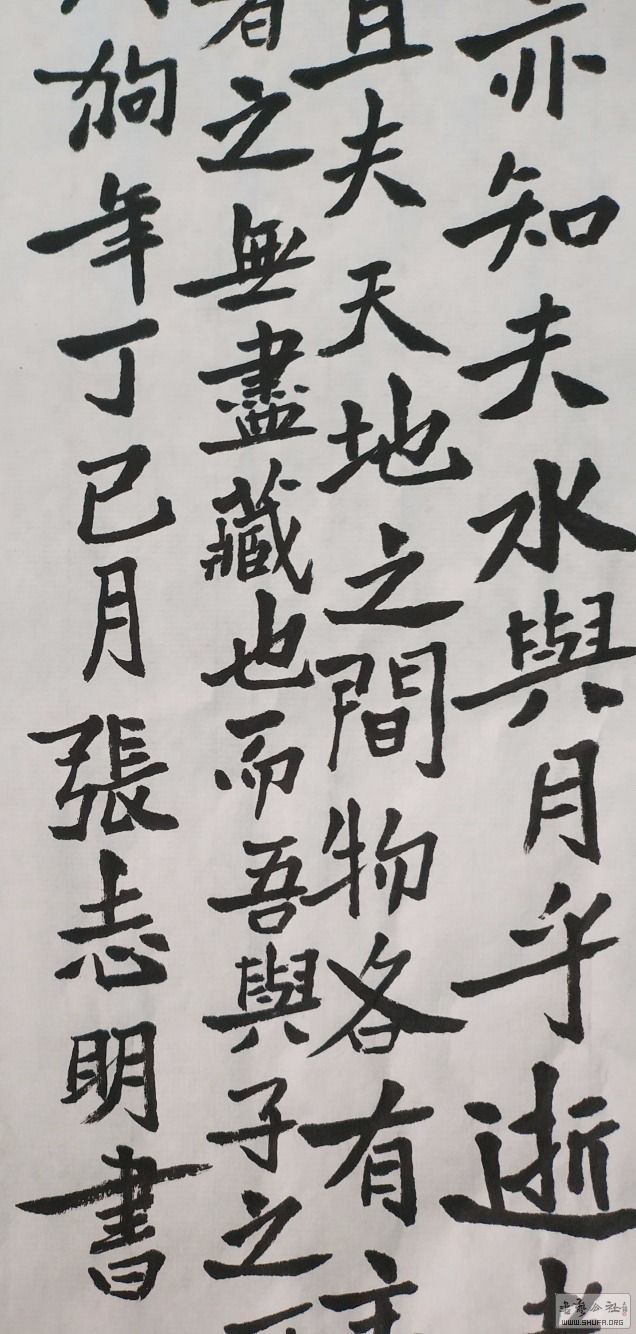 亦知夫水與月乎逝者
且夫天地之間物各有主
者之無盡藏也而吾與子之
狗年丁巳月張志明書
書藝公社
WWW.SHUFA.ORG